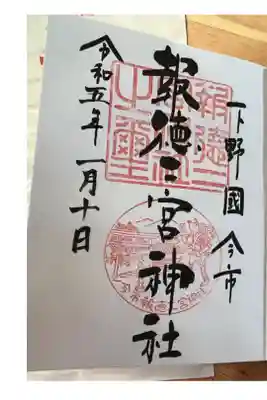 下野國 今市
報徳二宮神社
令和五年一月十日